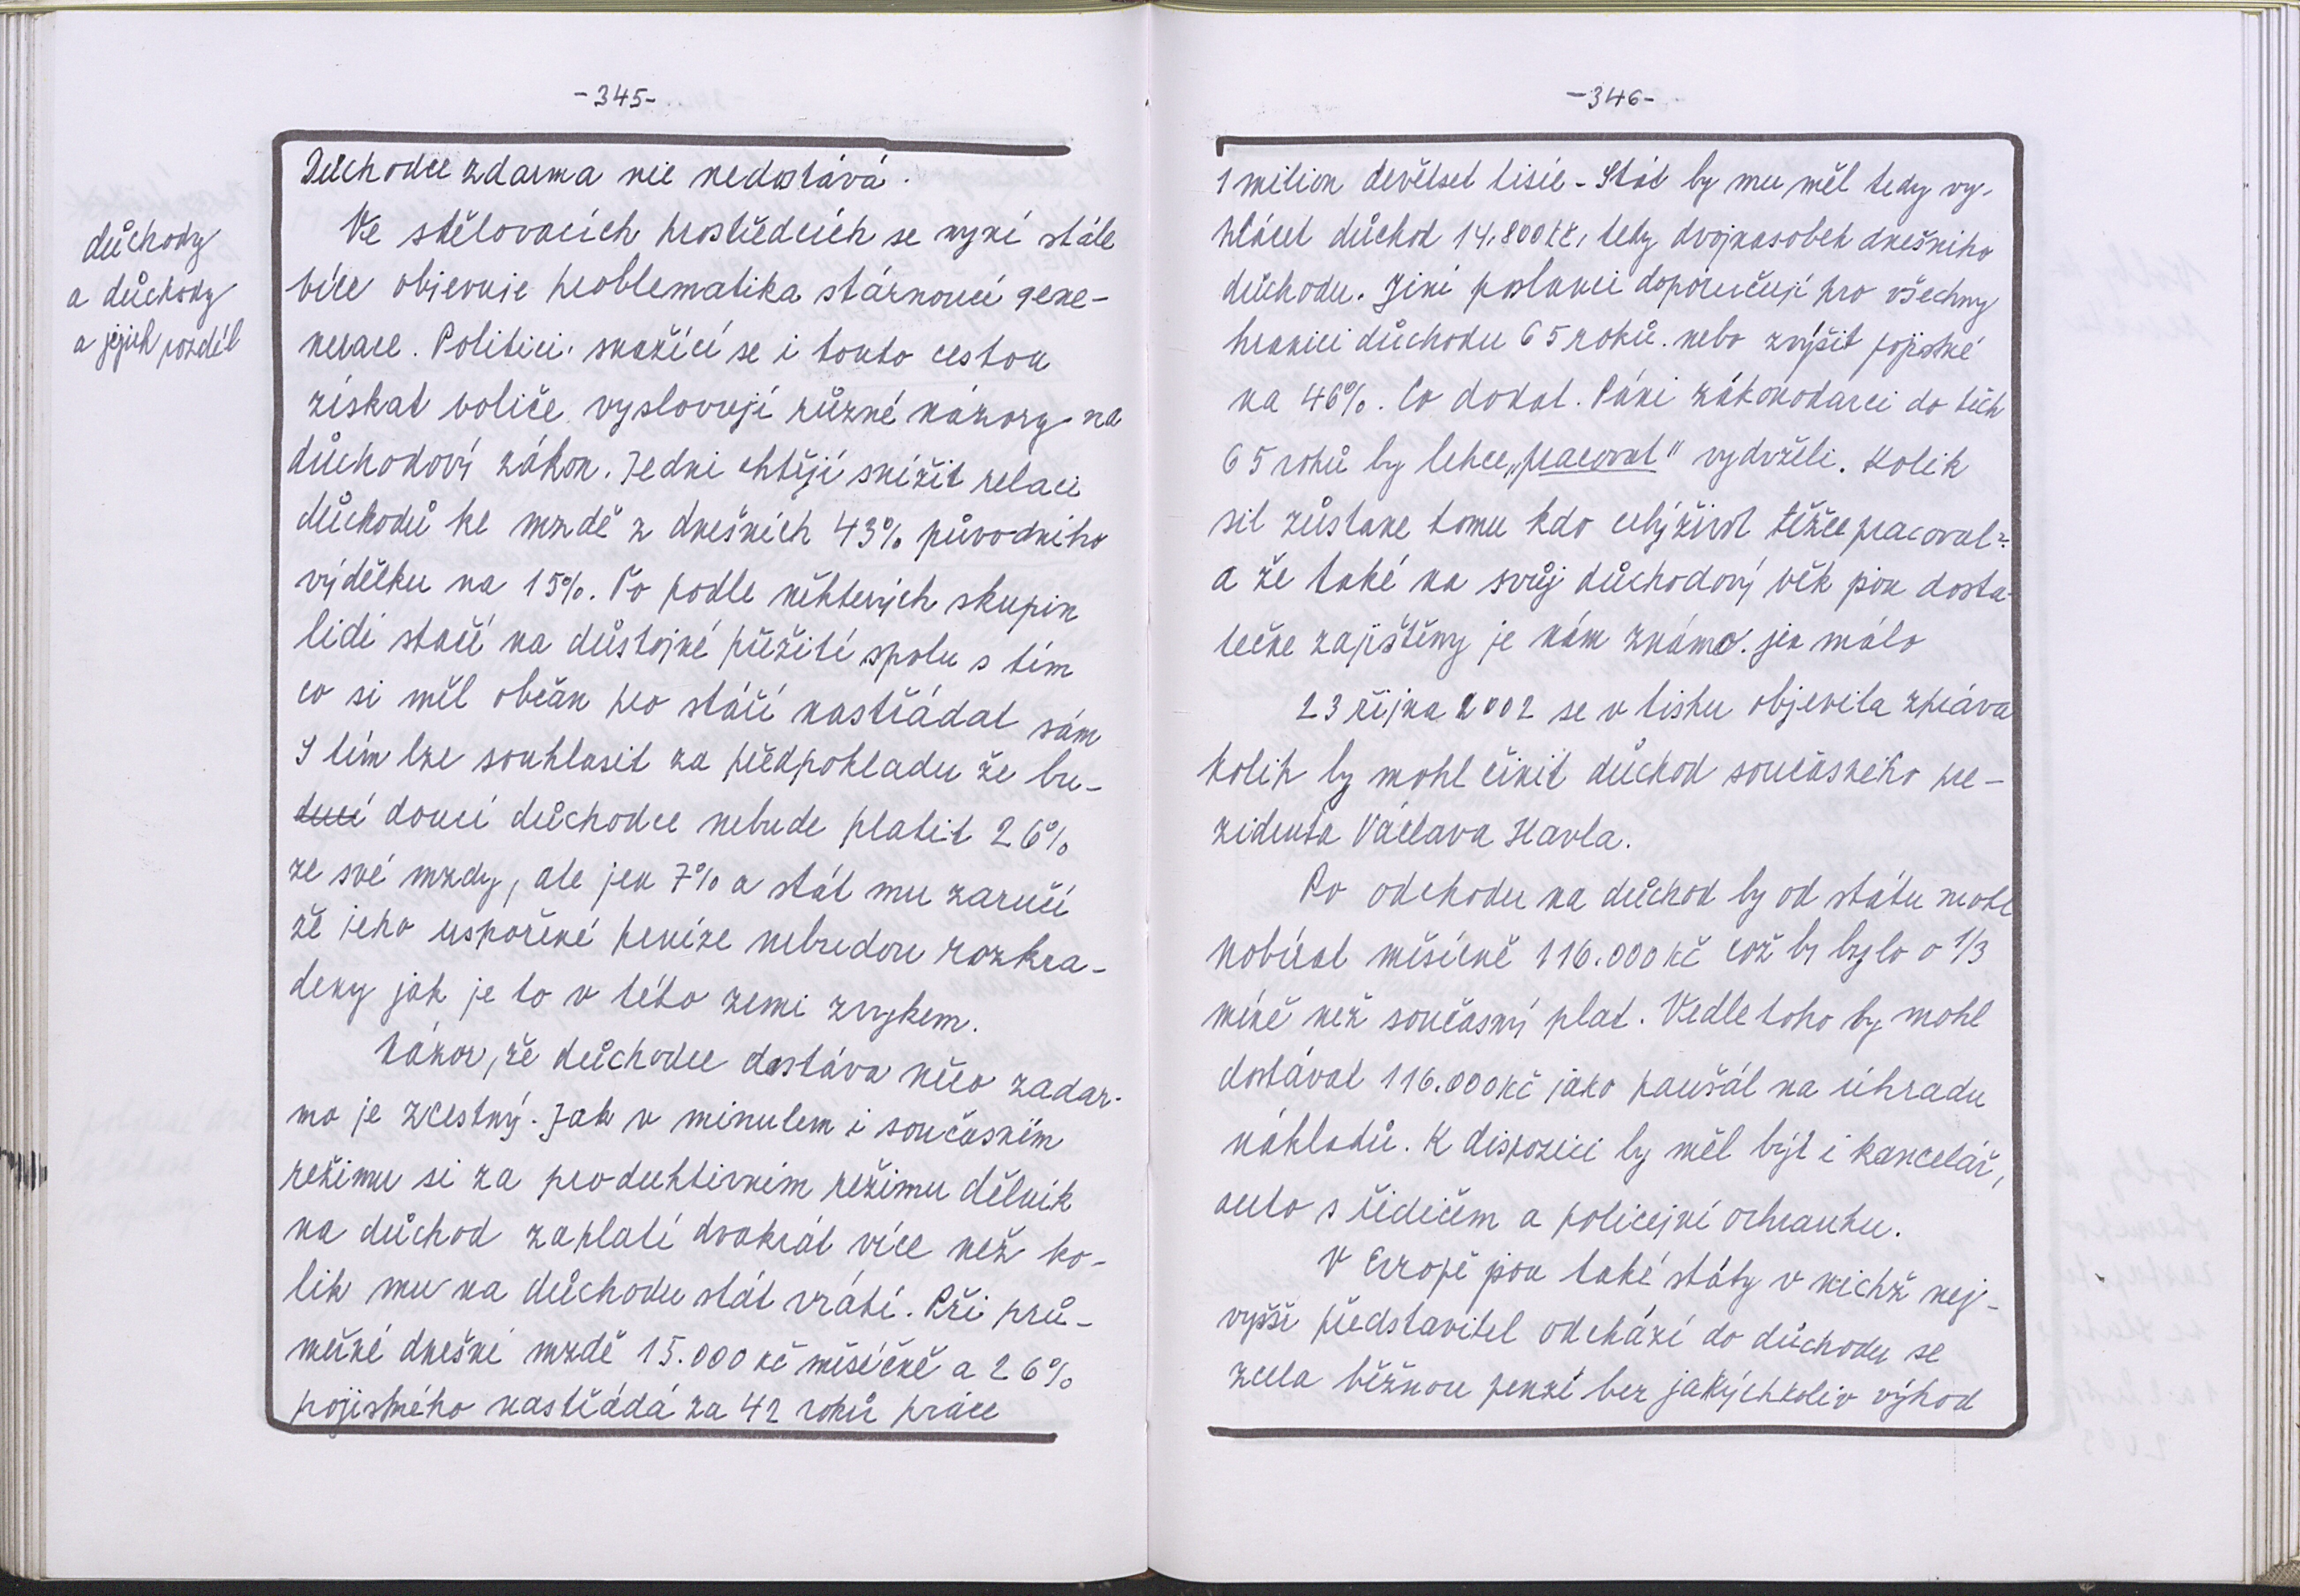 -345-
Důchodce zdarma nic nedostává.
důchody
a důchody
a jejich rozdíl
Ve sdělovacích prostředcích se nyní stále
více objevuje problematika stárnoucí gene-
nerace. Politici, snažící se i touto cestou
získat voliče vyslovují různé názory na
důchodový zákon. Jedni chtějí snížit relaci
důchodů ke mzdě z dnešních 43% původního
výdělku na 15%. To podle některých skupin
lidí stačí na důstojné přežití spolu s tím
co si měl občan pro stáří nastřádat sám
S tím lze souhlasit za předpokladu že bu-
ducí doucí důchodce nebude platit 26%
ze své mzdy, ale jen 7% a stát mu zaručí
že jeho uspořené peníze nebudou rozkra-
deny jak je to v této zemi zvykem.
Názor, že důchodce dostáva něco zadar-
mo je zcestný. Jak v minulem i současném
režimu si za produktivním režimu dělník
na důchod zaplatí dvakrát více než ko-
lik mu na důchodu stát vrátí. Při prů-
měrné dnešní mzdě 15.000 kč měsíčně a 26%
pojistného nastřádá za 42 roků práce
-346-
1 milion devětset tisíc - Stát by mu měl tedy vy-
plácet důchod 14.800 kč, tedy dvojnasobek dnešního
důchodu. Jiní poslanci doporučují pro všechny
hranici důchodu 65 roků. nebo zvýšit pojistné
na 46%. Co dodat. Páni zákonodarci do těch
65 roků by lehce „pracovat" vydrželi. Kolik
sil zůstane tomu kdo celý život těžce pracoval?
a že také na svůj důchodový věk jsou dosta-
tečne zajištěny je nám známo. jen málo
23 října 2002 se v tisku objevila zpráva
kolik by mohl činit důchod současného pre-
zidenta Václava Havla.
Po odchodu na důchod by od státu mohl
pobírat měsíčně 116.000 kč což by bylo o 1/3
méně než současný plat. Vedle toho by mohl
dostávat 116.000 kč jako paušál na úhradu
nákladů. K dispozici by měl být i kancelář,
auto s řidičem a policejní ochranku.
V Evropě jsou také státy v nichž nej-
vyšší představitel odchází do důchodu se
zcela běžnou penzí bez jakýchkoliv výhod